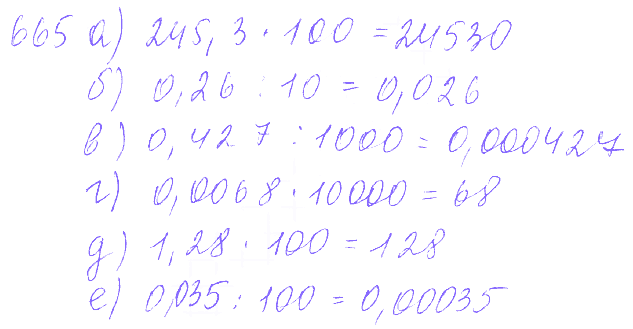 665 а) 245,3 · 100 = 24530
б) 0,26 : 10 = 0,026
в) 0,427 : 1000 = 0,000427
г) 0,0068 · 10000 = 68
д) 1,28 · 100 = 128
е) 0,035 : 100 = 0,00035